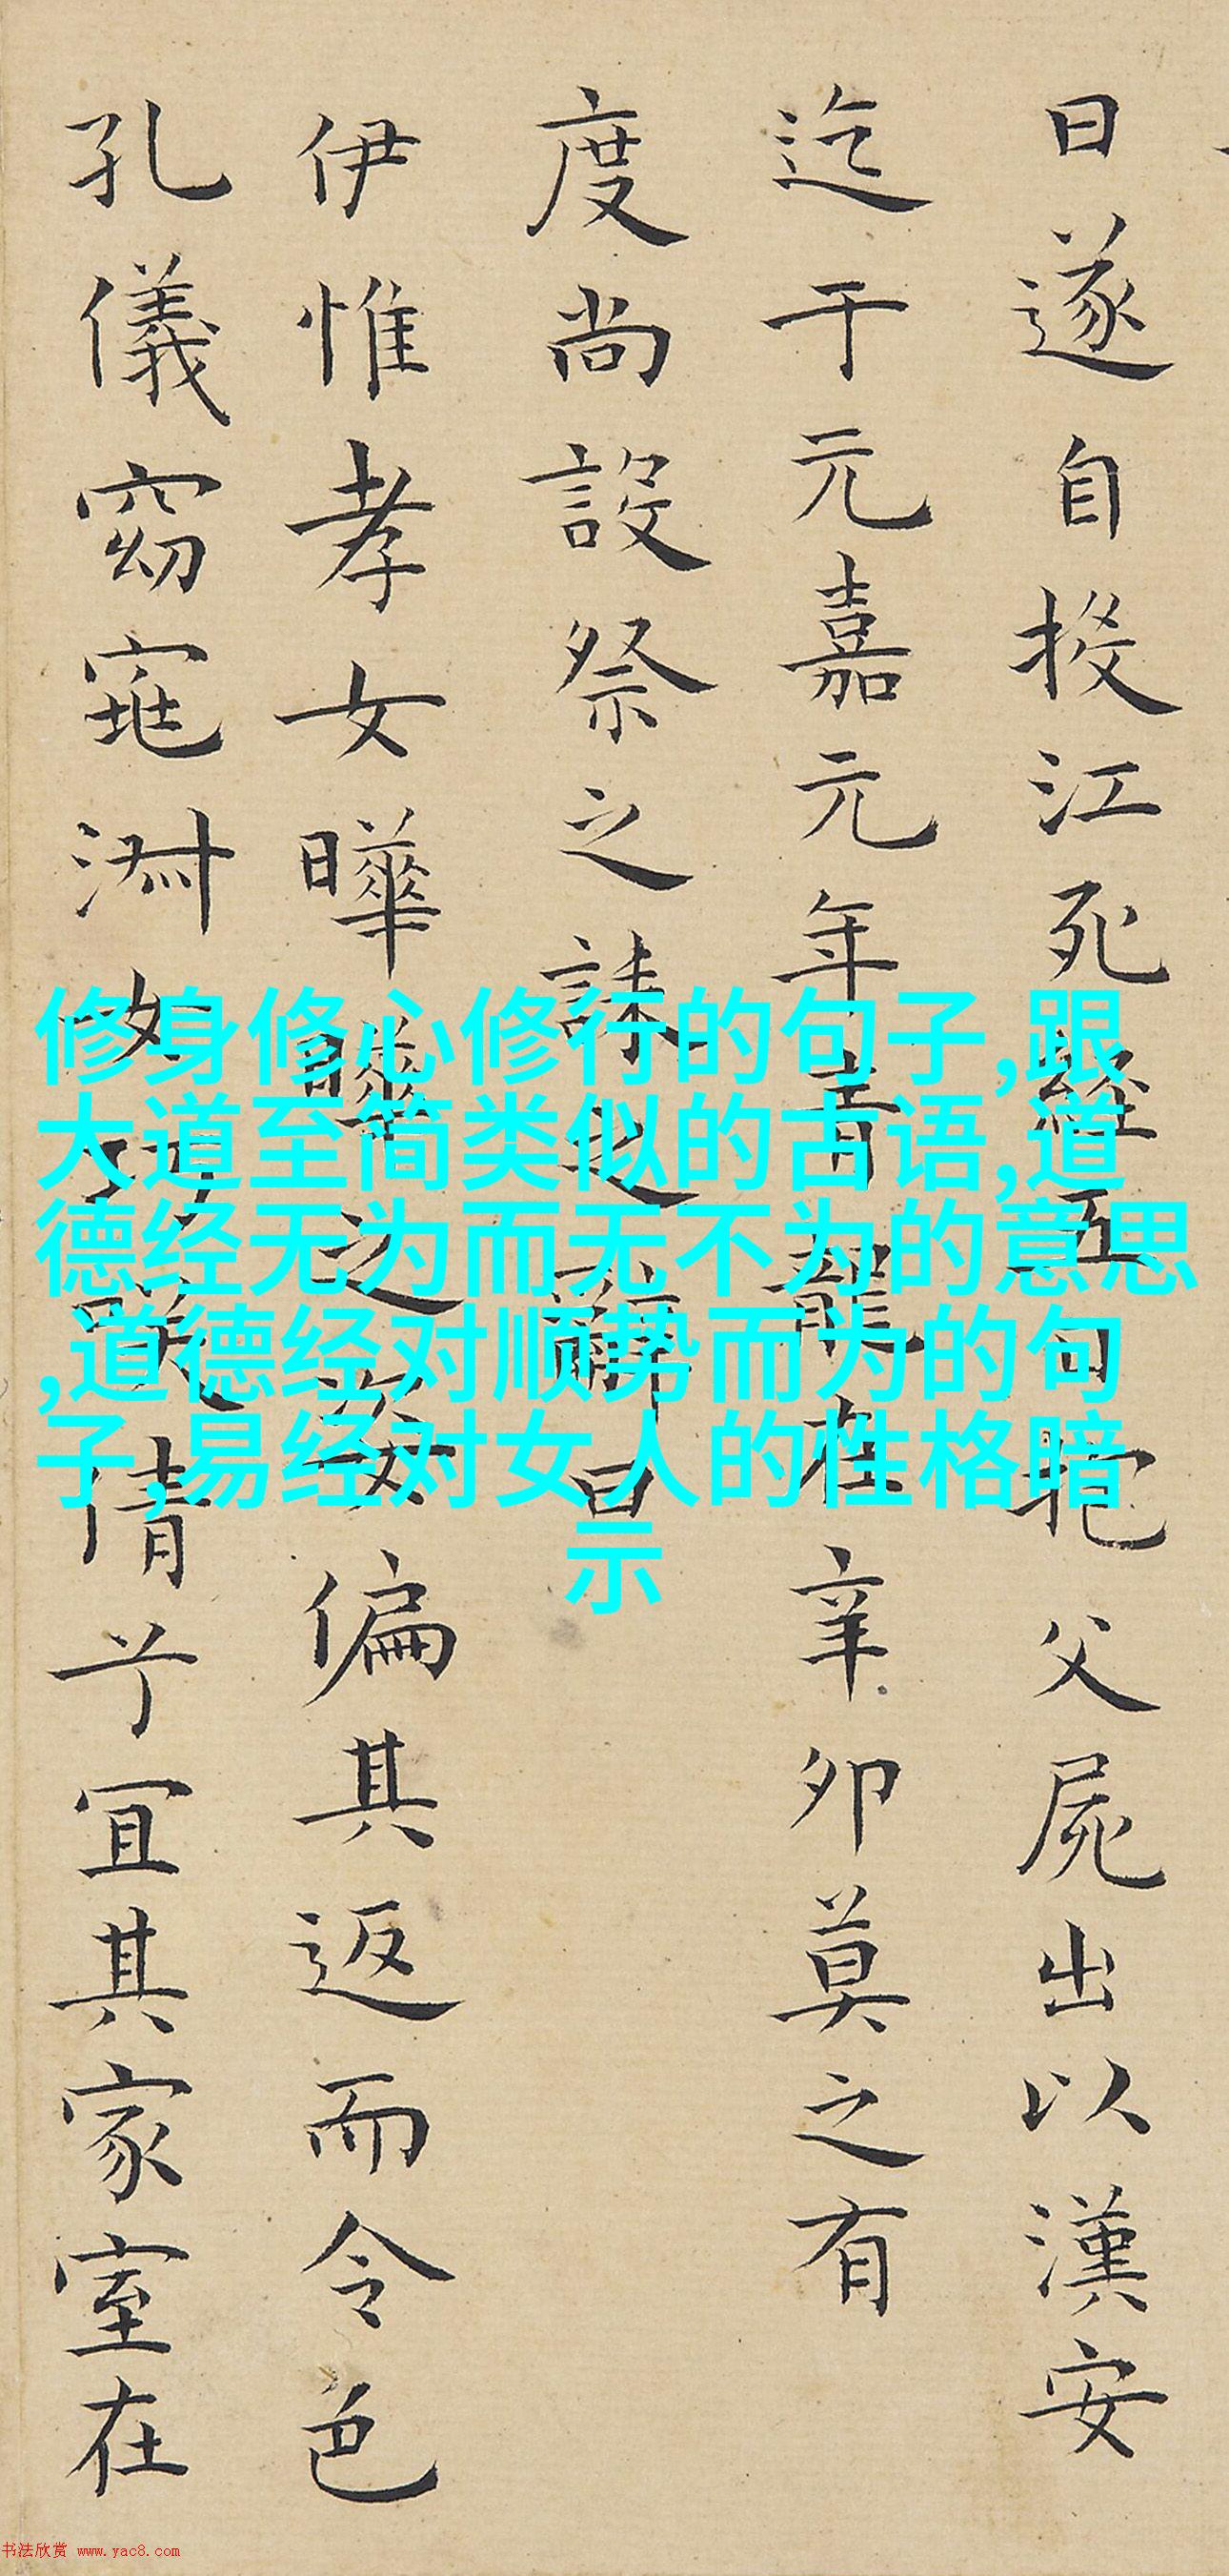 曰遂自投江死經五日抱父屍出以漢安
迄于元嘉元年青龍在辛卯莫之有
度尚設祭之誄之辭曰
伊惟孝女曄曄之姿偏其返而令色
孔儀窈窕淑女巧笑倩兮宜其家室在
修身修心修行的句子,跟
大道至简类似的古语,道
德经无为而无不为的意思
,道德经对顺势而为的句
子,易经对女人的性格暗
示
书法欣赏 www.yac8.com